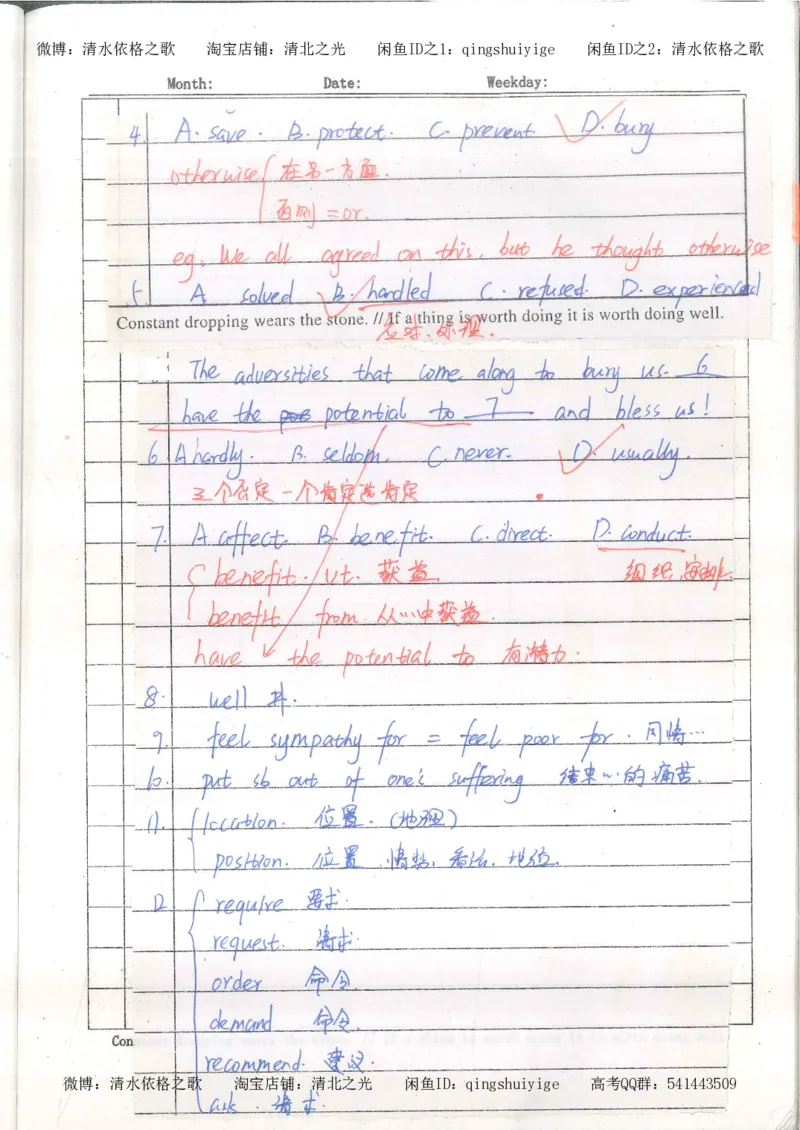 微博：清水依格之歌 淘宝店铺：清北之光 闲鱼ID之1：qingshuiyige 闲鱼ID之2：清水依格之歌
Month: Date: Weekday:
4. A. save. B. protect. C. prevent D. bury
otherwise 在另一方面.
否则 = or.
eg. We all agreed on this, but he thought otherwise
5 A solved B. handled C. refused. D. experienced
Constant dropping wears the stone. // If a thing is worth doing it is worth doing well.
应对. 处理.
The adversities that come along to bury us 6
have the potential to 7 and bless us!
6 A hardly. B. seldom. C. never. D. usually.
三个否定 一个肯定选肯定
7. A. affect. B. benefit. C. direct. D. conduct.
benefit. vt. 获益 组织, 安排.
benefit from 从…中获益.
have the potential to 有潜力.
8. well 井.
9. feel sympathy for = feel poor for. 同情…
10. put sb out of one's suffering 结束…的痛苦.
11. location. 位置. (地理)
position. 位置 情势, 看法, 地位.
12 require 要求.
request. 请求.
order 命令.
demand 命令.
Con
recommend. 建议.
微博：清水依格之歌 淘宝店铺：清北之光 闲鱼ID：qingshuiyige 高考QQ群：541443509
ask. 请求.